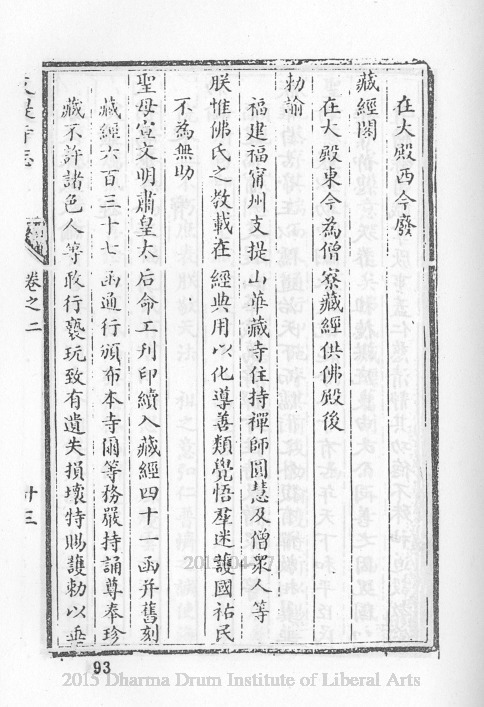 在大殿西今廢
藏經閣
在大殿東今為僧寮藏經供佛殿後
勅諭
福建福甯州支提山華藏寺住持禪師圓慧及僧衆人等
朕惟佛氏之教載在經典用以化導善類覺悟羣迷護國祐民
不為無助
聖母宣文明肅皇太后命工刊印續入藏經四十一函并舊刻
藏經六百三十七函通行頒布本寺爾等務嚴持誦尊奉珍
藏不許諸色人等敢行褻玩致有遺失損壞特賜護勅以垂
卷之二
十三
93
2015 Dharma Drum Institute of Liberal Arts